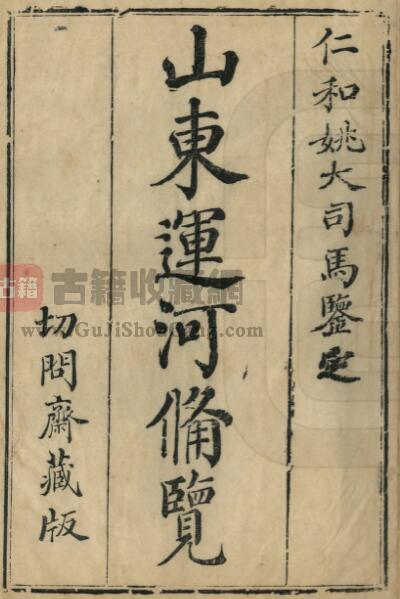 仁和姚大司馬鑒定
山東運河備覽
切問齋藏版
古籍
古籍收藏網
www.GuJiShouCang.com